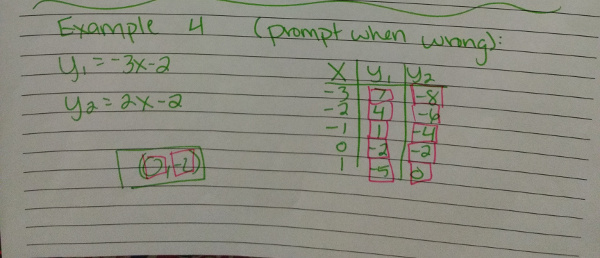 Example 4 (prompt when wrong):
y₁ = -3x-2
y₂ = 2x-2
X y₁ y₂
-3 7 -8
-2 4 -6
-1 1 -4
0 -2 -2
1 -5 0
(0,-2)